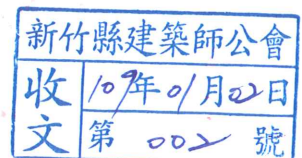 新竹縣建築師公會
收文
109年01月02日
第 002 號